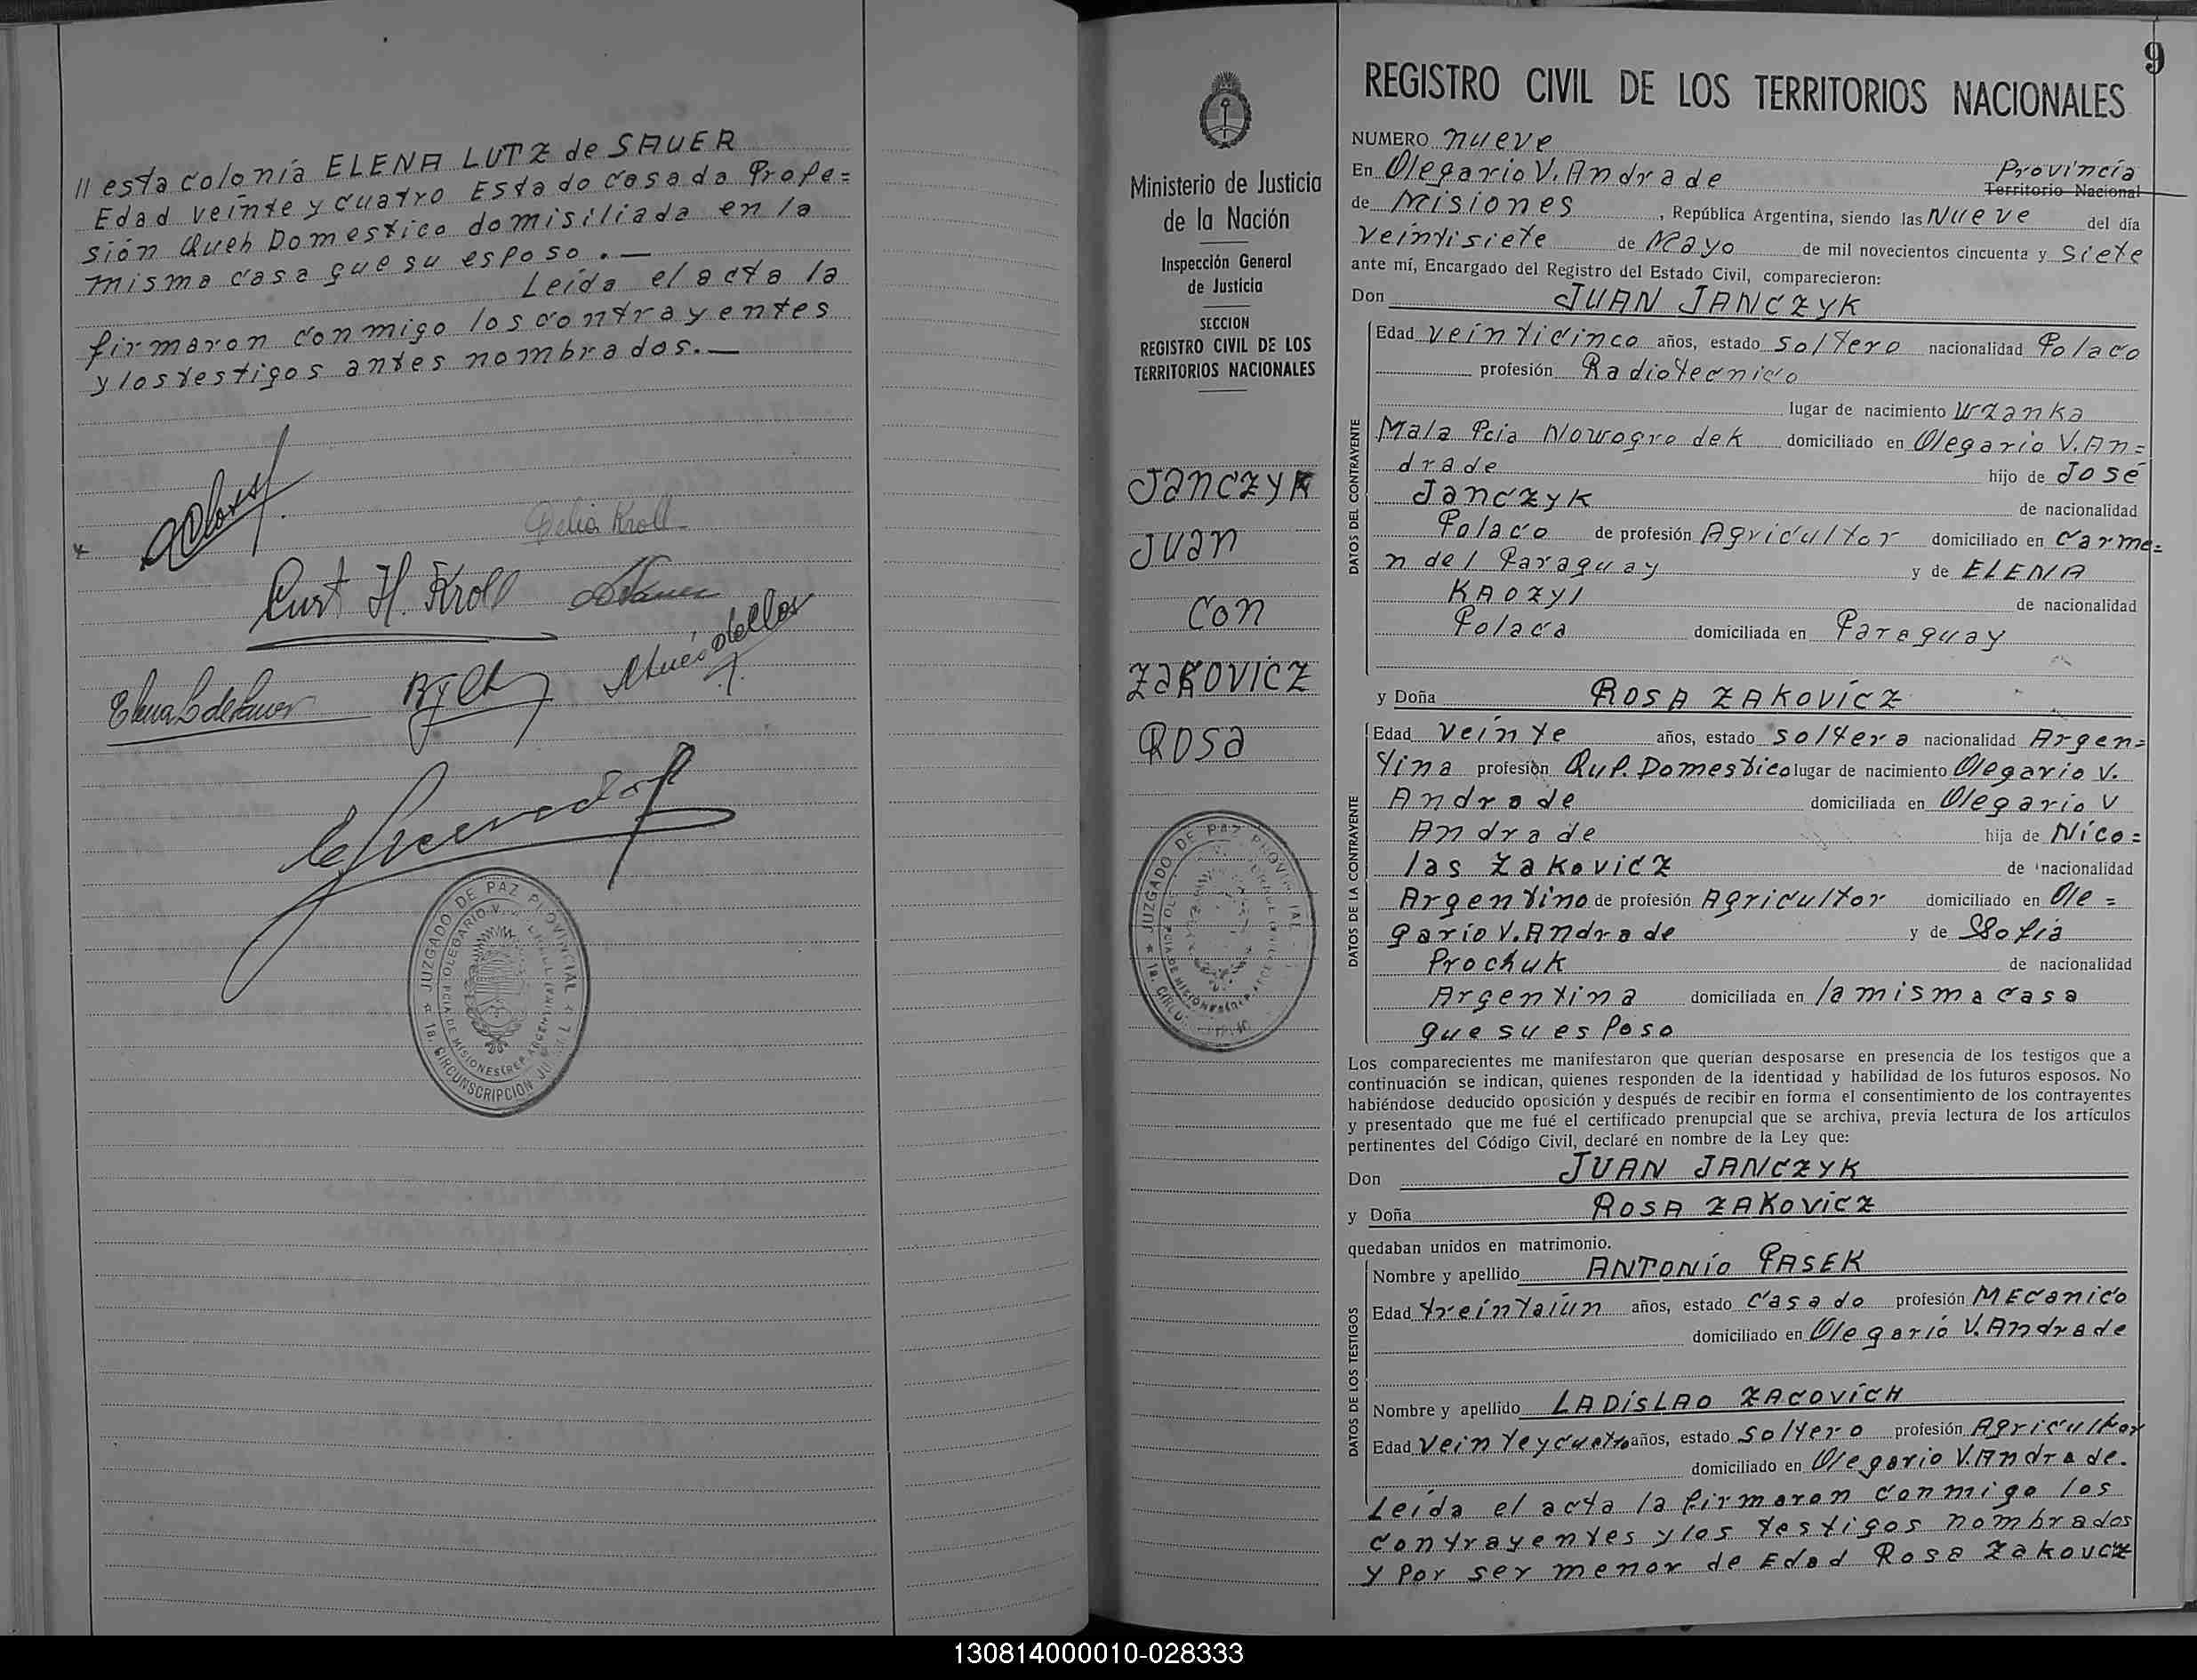 // esta colonia ELENA LUTZ de SAUER
Edad veinte y cuatro Estado casada Profe=
sión Queh Domestico domisiliada en la
misma casa que su esposo.—
Leída el acta la
firmaron conmigo los contrayentes
y los testigos antes nombrados.—
Delia Kroll
Curt H. Kroll
Elena L de Sauer
JUZGADO DE PAZ PROVINCIAL
1a. CIRCUNSCRIPCION JUDICIAL
Ministerio de Justicia
de la Nación
Inspección General
de Justicia
SECCION
REGISTRO CIVIL DE LOS
TERRITORIOS NACIONALES
JANCZYK
JUAN
CON
ZAKOVICZ
ROSA
JUZGADO DE PAZ PROVINCIAL
9
REGISTRO CIVIL DE LOS TERRITORIOS NACIONALES
NUMERO nueve
Provincia
En Olegario V. Andrade Territorio Nacional
de Misiones, República Argentina, siendo las Nueve del día
veintisiete de Mayo de mil novecientos cincuenta y siete
ante mí, Encargado del Registro del Estado Civil, comparecieron:
Don JUAN JANCZYK
DATOS DEL CONTRAYENTE
Edad veinticinco años, estado soltero nacionalidad Polaco
profesión Radiotecnico
lugar de nacimiento Wzanka
Mala Pcia Nowogrodek domiciliado en Olegario V. An=
drade hijo de José
Janczyk de nacionalidad
Polaco de profesión Agricultor domiciliado en Carme=
n del Paraguay y de ELENA
KAOZYI de nacionalidad
Polaca domiciliada en Paraguay
y Doña ROSA ZAKOVICZ
DATOS DE LA CONTRAYENTE
Edad veinte años, estado soltera nacionalidad Argen=
tina profesión Quf. Domestico lugar de nacimiento Olegario V.
Andrade domiciliada en Olegario V
Andrade hija de Nico=
las Zakovicz de nacionalidad
Argentino de profesión Agricultor domiciliado en Ole=
gario V. Andrade y de Sofia
Prochuk de nacionalidad
Argentina domiciliada en la misma casa
que su esposo
Los comparecientes me manifestaron que querían desposarse en presencia de los testigos que a
continuación se indican, quienes responden de la identidad y habilidad de los futuros esposos. No
habiéndose deducido oposición y después de recibir en forma el consentimiento de los contrayentes
y presentado que me fué el certificado prenupcial que se archiva, previa lectura de los artículos
pertinentes del Código Civil, declaré en nombre de la Ley que:
Don JUAN JANCZYK
y Doña ROSA ZAKOVICZ
quedaban unidos en matrimonio.
DATOS DE LOS TESTIGOS
Nombre y apellido ANTONIO PASEK
Edad treintaiún años, estado casado profesión MEcanico
domiciliado en Olegario V. Andrade
Nombre y apellido LADISLAO ZACOVICH
Edad veinteycuatro años, estado soltero profesión Agricultor
domiciliado en Olegario V. Andrade.
Leída el acta la firmaron conmigo los
contrayentes y los testigos nombrados
y por ser menor de Edad Rosa Zakovcz
130814000010-028333